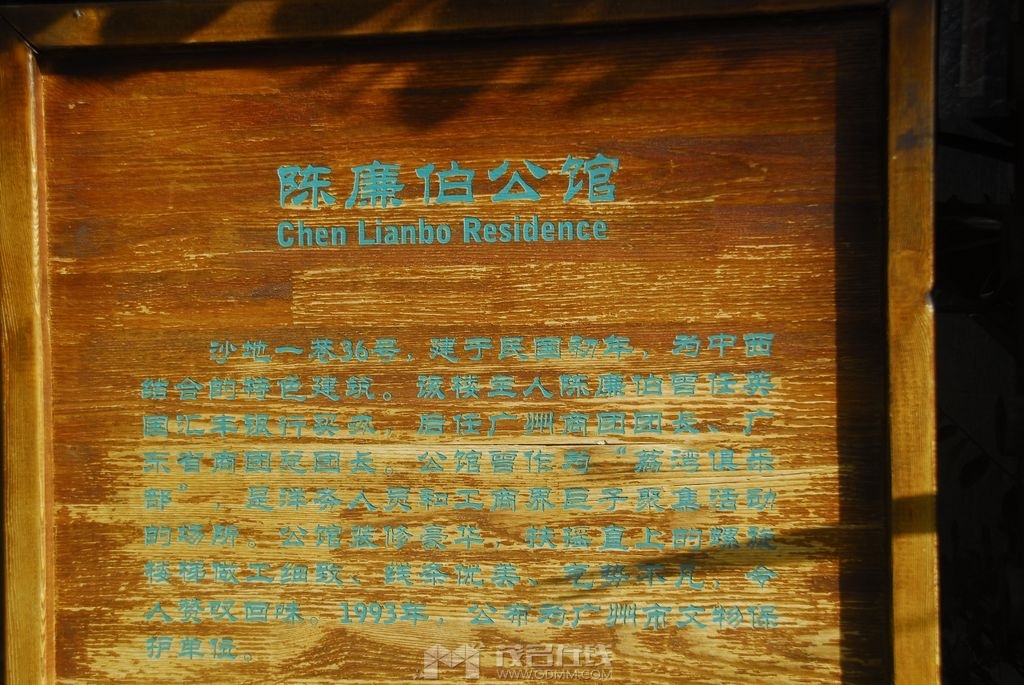 陈廉伯公馆
Chen Lianbo Residence
沙地一巷36号，建于民国初年，为中西
结合的特色建筑。该楼主人陈廉伯曾任英
国汇丰银行买办，后任广州商团团长、广
东省商团总团长。公馆曾作为“荔湾俱乐
部”，是洋务人员和工商界巨子聚集活动
的场所。公馆装修豪华，扶摇直上的螺旋
楼梯做工细致、线条优美、气势不凡，令
人赞叹回味。1993年，公布为广州市文物保
护单位。
茂名在线
WWW.GDMM.COM